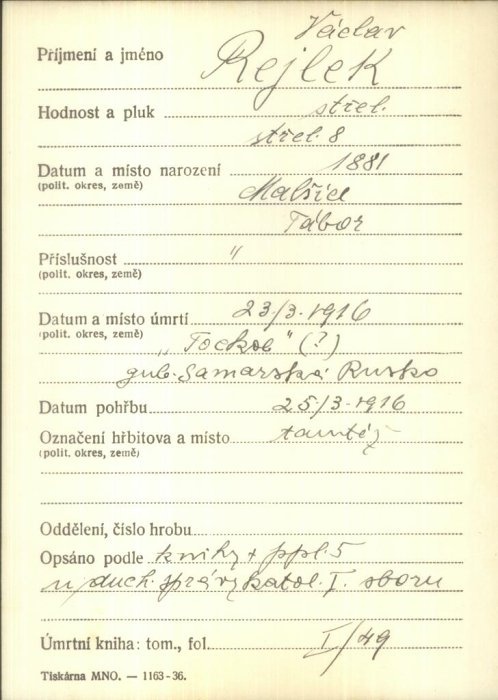 Václav
Příjmení a jméno Rejlek
Hodnost a pluk střel.
střel. 8
Datum a místo narození 1881
(polit. okres, země) Malšice
Tábor
Příslušnost "
(polit. okres, země)
Datum a místo úmrtí 23/3. 1916
(polit. okres, země) „Tockoe" (?)
gub. Samarská Rusko
Datum pohřbu 25/3. 1916
Označení hřbitova a místo tamtéž
(polit. okres, země)
Oddělení, číslo hrobu
Opsáno podle knihy + ppl. 5
u duch. správy katol. I. sboru
Úmrtní kniha: tom., fol. I/49
Tiskárna MNO. — 1163-36.